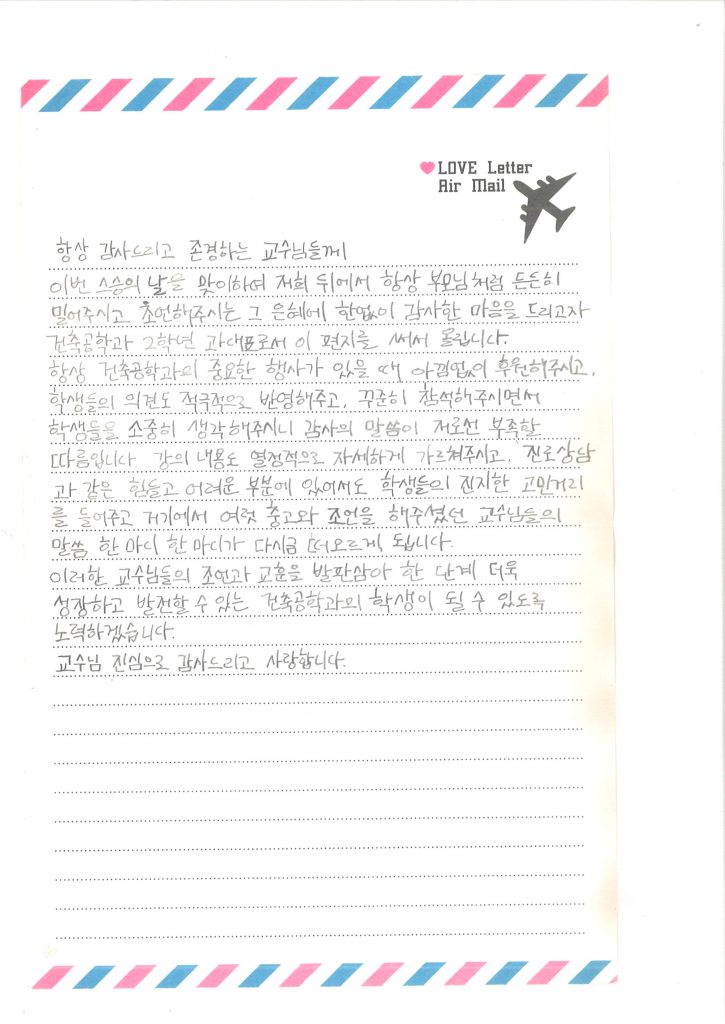 LOVE Letter
Air Mail
항상 감사드리고 존경하는 교수님들께
이번 스승의 날을 맞이하여 저희 뒤에서 항상 부모님처럼 든든히
밀어주시고 조언해주시는 그 은혜에 한없이 감사한 마음을 드리고자
건축공학과 2학년 과대표로서 이 편지를 써서 올립니다.
항상 건축공학과의 중요한 행사가 있을 때 아낌없이 후원해주시고,
학생들의 의견도 적극적으로 반영해주고, 꾸준히 참석해주시면서
학생들을 소중히 생각해주시니 감사의 말씀이 저로선 부족할
따름입니다. 강의 내용도 열정적으로 자세하게 가르쳐주시고, 진로상담
과 같은 힘들고 어려운 부분에 있어서도 학생들의 진지한 고민거리
를 들어주고 거기에서 여럿 충고와 조언을 해주셨던 교수님들의
말씀 한 마디 한 마디가 다시금 떠오르게 됩니다.
이러한 교수님들의 조언과 교훈을 발판삼아 한 단계 더욱
성장하고 발전할 수 있는 건축공학과의 학생이 될 수 있도록
노력하겠습니다.
교수님 진심으로 감사드리고 사랑합니다.